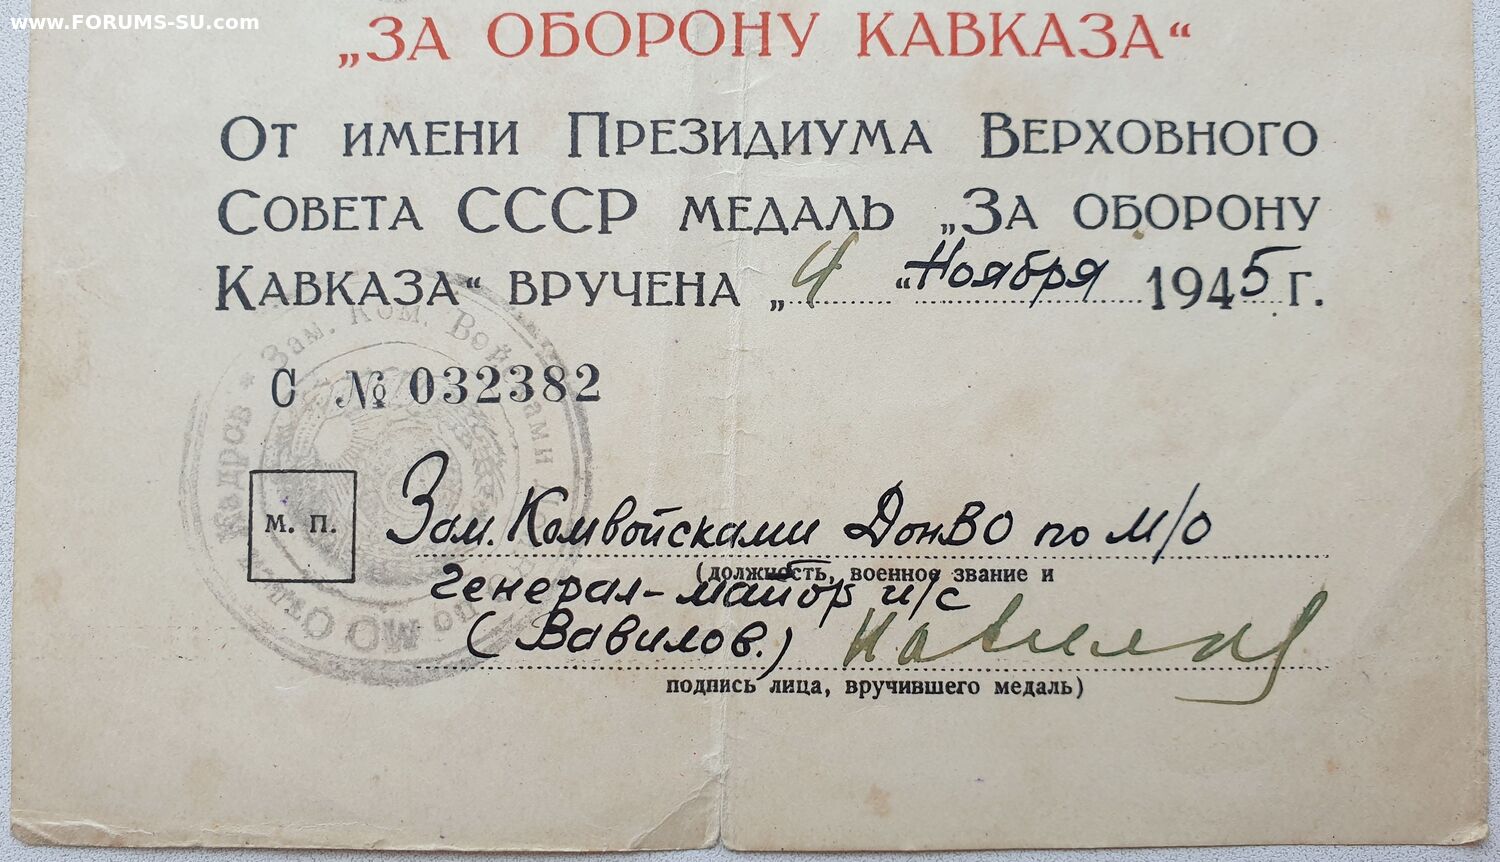 www.FORUMS-SU.com
„ЗА ОБОРОНУ КАВКАЗА“
ОТ ИМЕНИ ПРЕЗИДИУМА ВЕРХОВНОГО
СОВЕТА СССР МЕДАЛЬ „ЗА ОБОРОНУ
КАВКАЗА“ ВРУЧЕНА „4“ Ноября 1945 г.
Зам. Ком. Войсками
Кадров
МО
С № 032382
М. П.
Зам. Комвойсками ДонВО по М/О
(должность, военное звание и
генерал-майор и/с
(Вавилов.)
подпись лица, вручившего медаль)